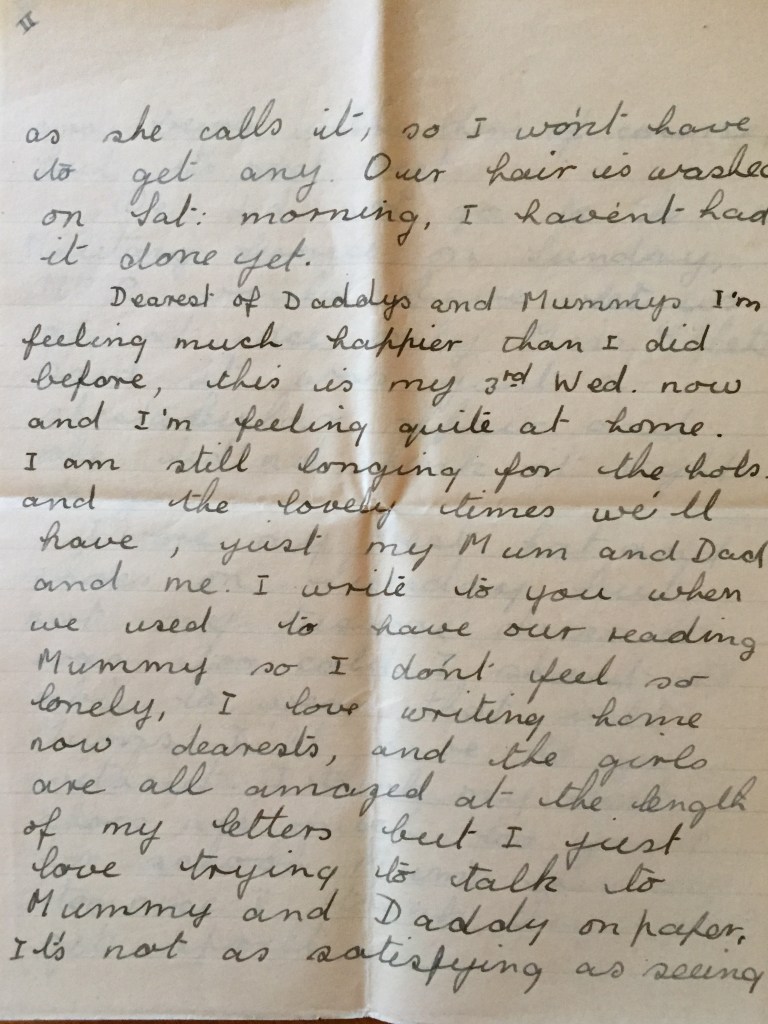 II
as she calls it, so I won't have
to get any. Our hair is washed
on Sat: morning, I haven't had
it done yet.
Dearest of Daddys and Mummys I'm
feeling much happier than I did
before, this is my 3rd Wed. now
and I'm feeling quite at home.
I am still longing for the hols.
and the lovely times we'll
have, just my Mum and Dad
and me. I write to you when
we used to have our reading
Mummy so I don't feel so
lonely, I love writing home
now dearests, and the girls
are all amazed at the length
of my letters but I just
love trying to talk to
Mummy and Daddy on paper.
It's not as satisfying as seeing